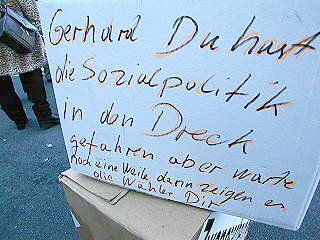 Gerhard Du hast
die Sozialpolitik
in den Dreck
gefahren aber warte
noch eine Weile dann zeigen es
die Wähler Dir